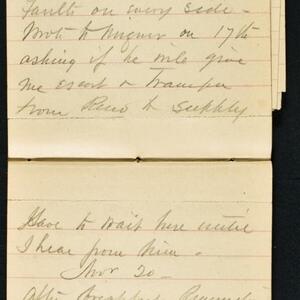 faults on every side -
Wrote to Mizner on 17th
asking if he will give
me escort & transp
from Reno to Supply
Have to wait here until
I hear from him -
Nov 20 -
After breakfast